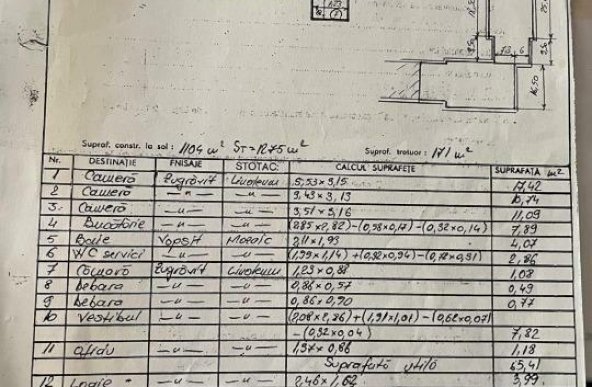 Supraf. constr. la sol: 1104 m² ST=1275 m² Supraf. trotuar: 171 m²
Nr. DESTINAȚIE FNISAJE STOTAC. CALCUL SUPRAFEȚE SUPRAFAȚA m²
1 Cameră Zugrăvit Linoleum 5,53×3,15 17,42
2 Cameră —"— —"— 3,43×3,13 10,74
3. Cameră —"— —"— 3,51×3,16 11,09
4 Bucătărie —"— —"— (2,85×2,82)-(0,58×0,17)-(0,32×0,14) 7,89
5 Baie Vopsit Mozaic 2,11×1,93 4,07
6 WC servici —"— —"— 2,86
7 Cămară Zugrăvit Linoleum 1,23×0,88 1,08
8 Debara —"— —"— 0,86×0,57 0,49
9 Debara —"— —"— 0,86×0,90 0,77
10 Vestibul —"— —"— (1,91×1,01)-(0,62×0,07)
-(0,92×0,04) 7,82
11 —"— —"— 1,37×0,86 1,18
Suprafață utilă 65,41
12 Logie —"— —"— 2,46×1,62 3,99